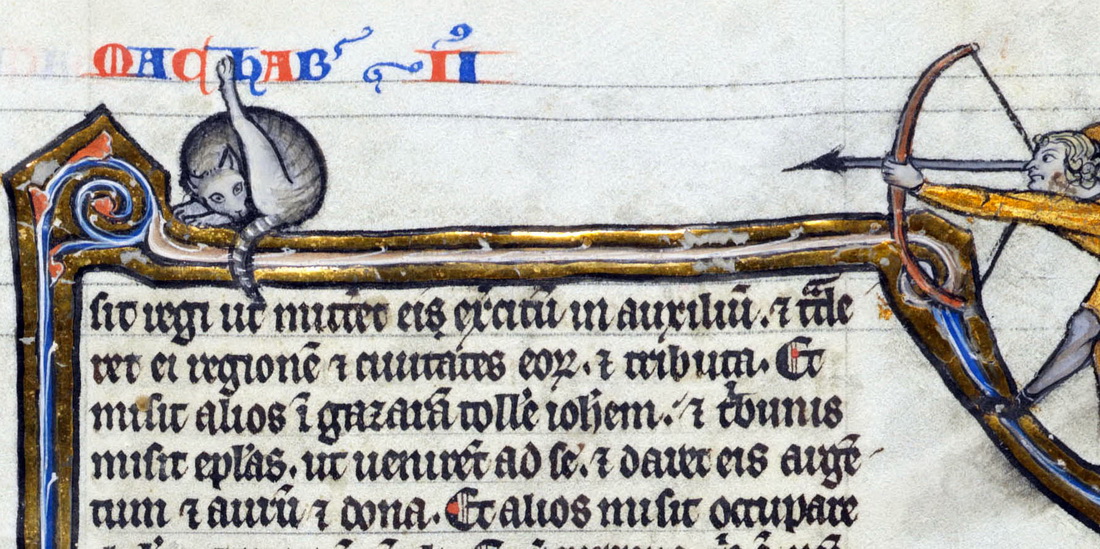 MAChAB II
sit regi ut mittēt eis ex̄citū in auxiliū. ⁊ tᵃde
ret ei regionē ⁊ ciuitates eoꝝ. ⁊ tributa. Et
misit alios ī gazarā toll'e ioh̄em. ⁊ t'bunis
misit ep̄las. ut uenirēt ad se. ⁊ daret eis argē
tum ⁊ aurū ⁊ dona. Et alios misit occupare